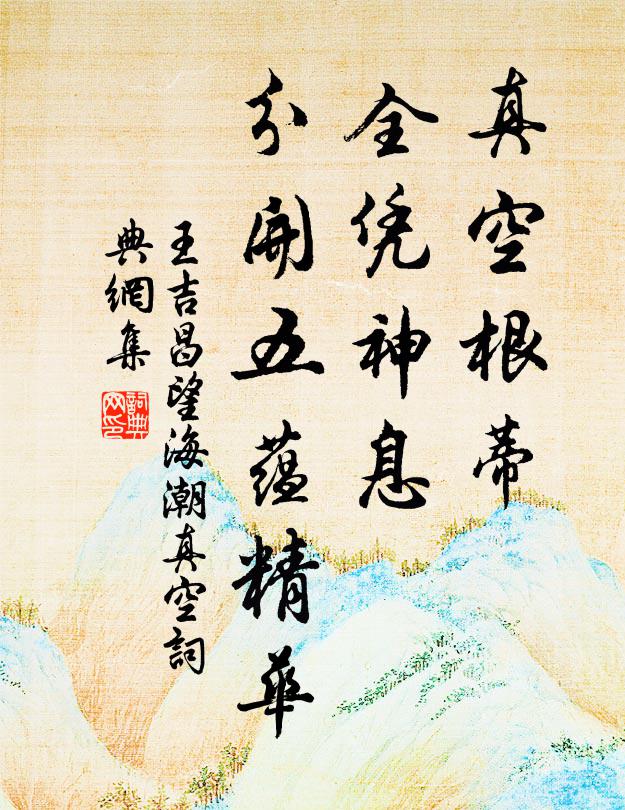 真空根蒂
全凭神息
分開五蕴精華
王吉昌望海潮真空詞
典網集
詞典
网印